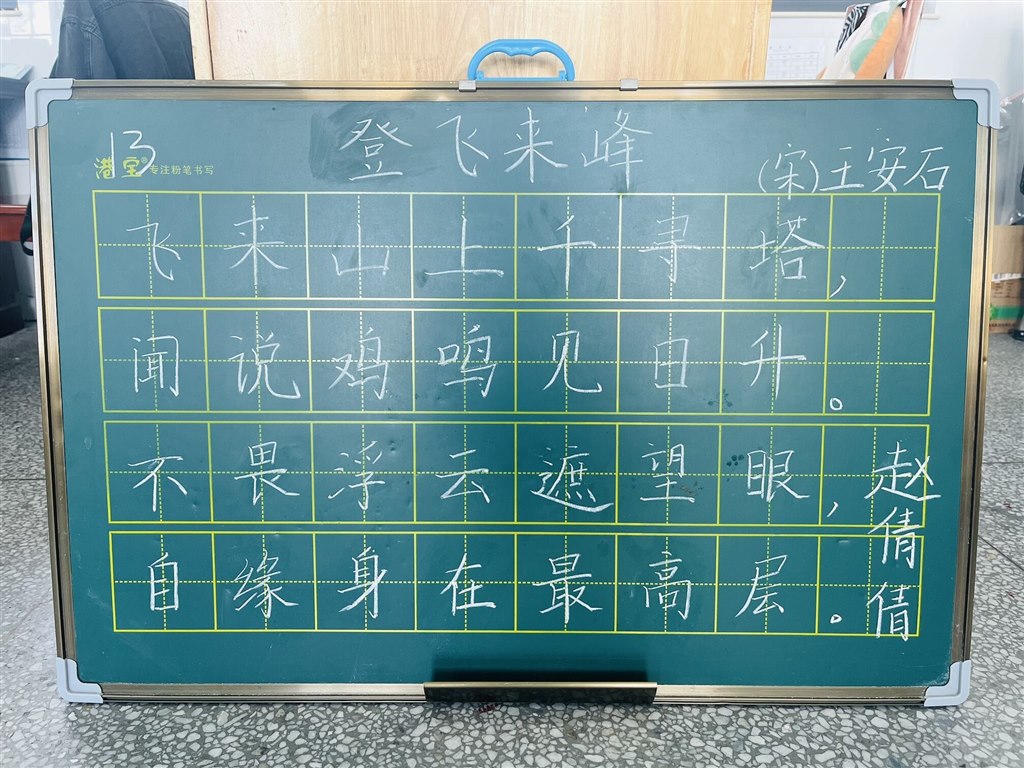 登飞来峰
13
港宝® 专注粉笔书写
(宋)王安石
飞来山上千寻塔,
闻说鸡鸣见日升。
不畏浮云遮望眼,
自缘身在最高层。
赵倩倩